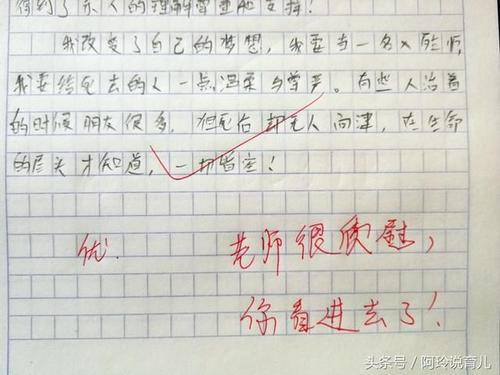 得到了家人的理解尊重和支持！
我改变了自己的梦想，我要当一名入殓师，
我要给死去的人一点温柔与尊严。有些人活着
的时候朋友很多，但死后却无人问津，在生命
的尽头才知道，一切皆空！
优. 老师很欣慰，
你看进去了！
头条号／阿玲说育儿